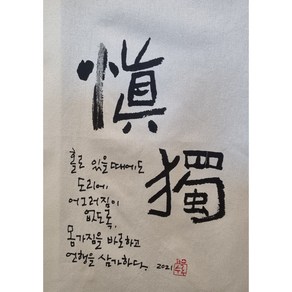 愼
獨
홀로 있을 때에도
도리에
어그러짐이
없도록,
몸가짐을 바로하고
언행을 삼가하다.
2021